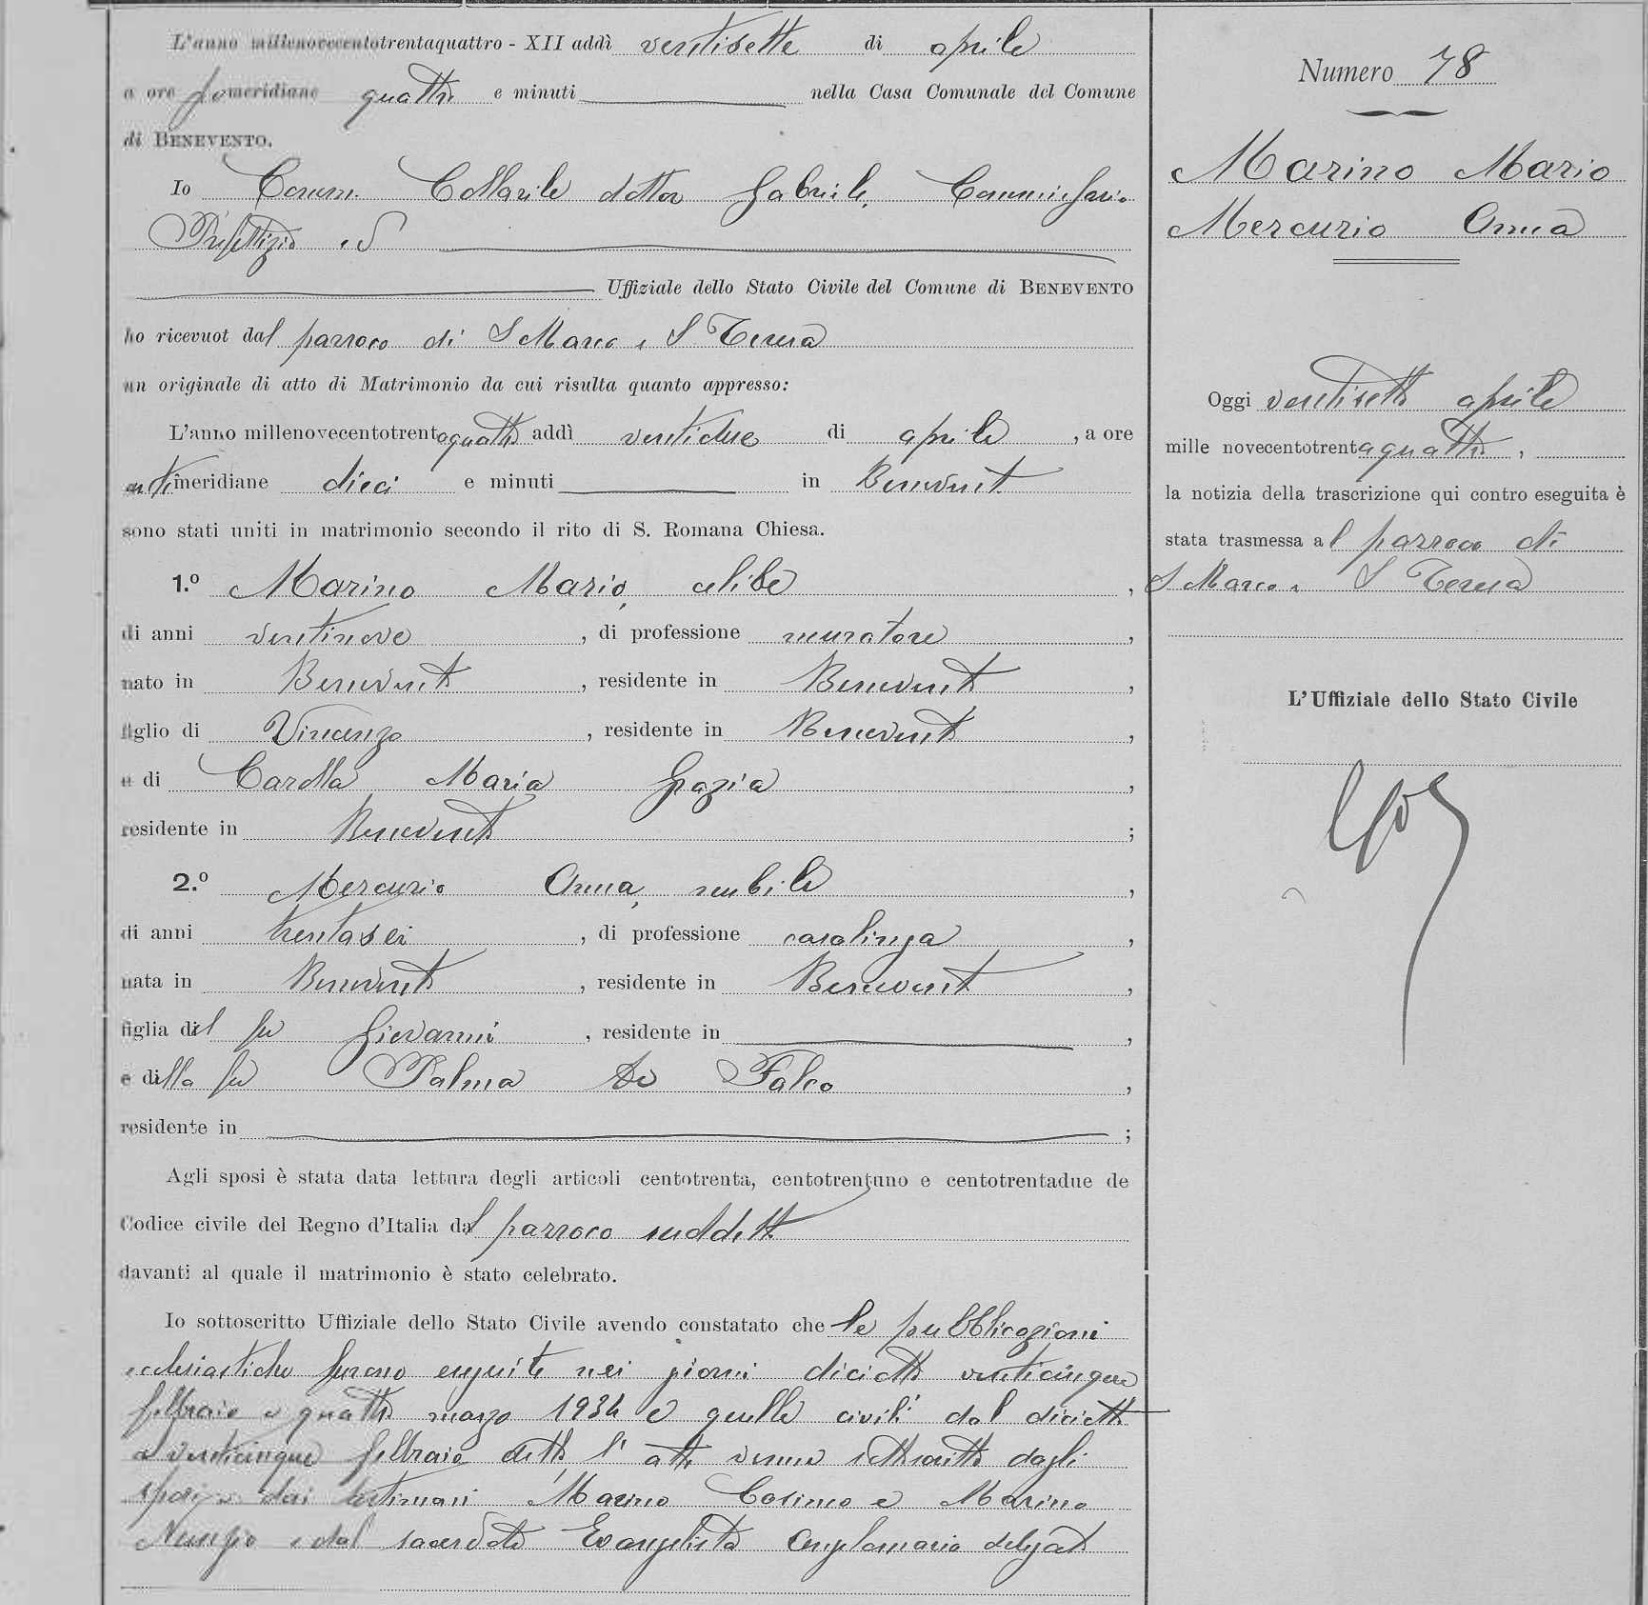 L'anno millenovecentotrentaquattro - XII addì ventisette di aprile
a ore pomeridiane quattro e minuti nella Casa Comunale del Comune
di BENEVENTO.
Io Comm. dottor Gabriele, Commissario
Prefettizio
Uffiziale dello Stato Civile del Comune di BENEVENTO
ho ricevuot dal parroco di S Marco e S Teresa
un originale di atto di Matrimonio da cui risulta quanto appresso:
L'anno millenovecentotrentaquattro addì ventidue di aprile, a ore
antimeridiane dieci e minuti in Benevento
sono stati uniti in matrimonio secondo il rito di S. Romana Chiesa.
1.º Marino Mario, celibe,
di anni ventinove, di professione muratore,
nato in Benevento, residente in Benevento,
figlio di Vincenzo, residente in Benevento,
e di Carolla Maria Grazia,
residente in Benevento;
2.º Mercurio Anna, nubile,
di anni trentasei, di professione casalinga,
nata in Benevento, residente in Benevento,
figlia del fu Giovanni, residente in,
e della fu Palma De Falco,
residente in;
Agli sposi è stata data lettura degli articoli centotrenta, centotrentuno e centotrentadue de
Codice civile del Regno d'Italia dal parroco suddetto
davanti al quale il matrimonio è stato celebrato.
Io sottoscritto Uffiziale dello Stato Civile avendo constatato che le pubblicazioni
ecclesiastiche furono eseguite nei giorni diciotto venticinque
febbraio e quattro marzo 1934 e quelle civili dal diciotto
a venticinque febbraio detto, l'atto venne sottoscritto dagli
sposi e dai testimoni Marino Cosimo e Marino
Nunzio e dal sacerdote Evangelista delegato
Numero 78
Marino Mario
Mercurio Anna
Oggi ventisette aprile
mille novecentotrentaquattro,
la notizia della trascrizione qui contro eseguita è
stata trasmessa al parroco di
S Marco e S Teresa
L'Uffiziale dello Stato Civile